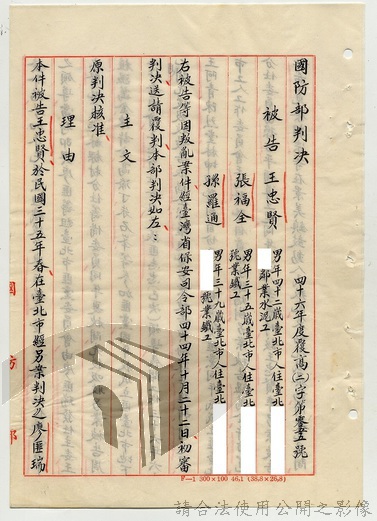 國防部判決
四十六年度覆高(二)字第零五號
被告王忠賢
男年四十二歲臺北市人住臺北
業水泥工
張福全
男年三十五歲臺北市人住臺北
業鐵工
孫羅通
男年三十九歲臺北市人住臺北
業鐵工
右被告等因叛亂案件經臺灣省保安司令部四十四年十月二十二日初審
判決送請覆判本部判決如左：
主文
原判決核准
理由
本件被告王忠賢於民國三十五年春在臺北市經另案判決之廖匪瑞
國防部
F—1 300×100 46.1 (38.8×26.8)
請合法使用公開之影像